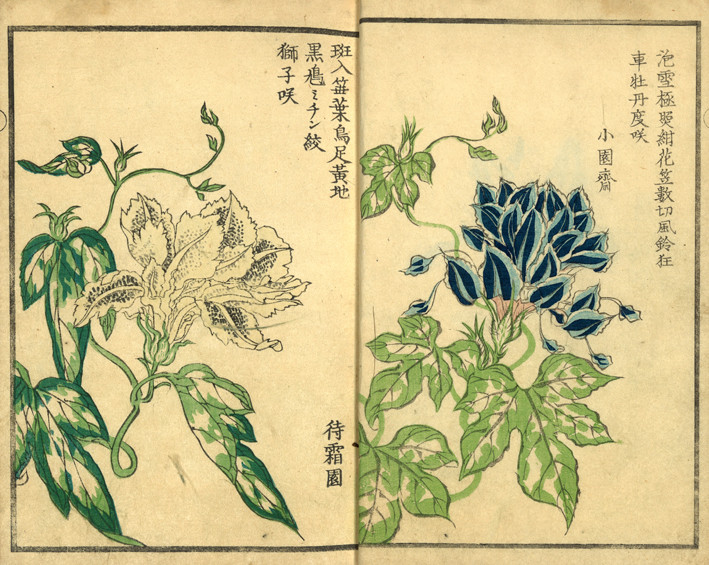 泡雪極照紺花笠數切風鈴狂
車牡丹度咲
小園齋
斑入笹葉鳥足黃地
黒鳩ミチン絞
獅子咲
待霜園